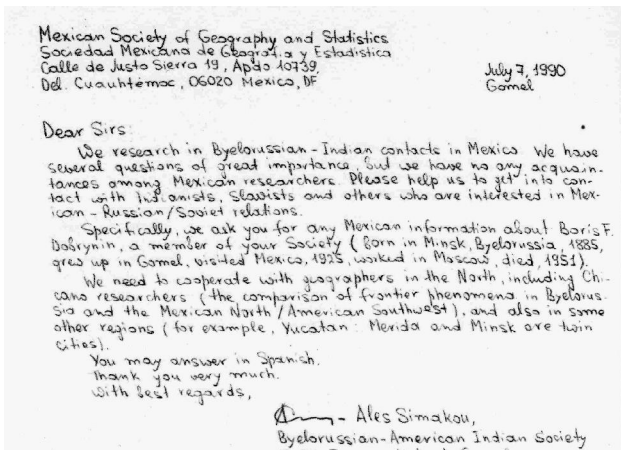 Mexican Society of Geography and Statistics
Sociedad Mexicana de Geografía y Estadística
Calle de Justo Sierra 19, Apdo 10739,
Del. Cuauhtémoc, 06020 México, DF
July 7, 1990
Gomel
Dear Sirs:
We research in Byelorussian-Indian contacts in Mexico. We have
several questions of great importance, but we have no any acquain-
tances among Mexican researchers. Please help us to get into con-
tact with Indianists, Slavists and others who are interested in Mex-
ican-Russian/Soviet relations.
Specifically, we ask you for any Mexican information about Boris F.
Dobrynin, a member of your Society (born in Minsk, Byelorussia, 1885,
grew up in Gomel, visited Mexico, 1925, worked in Moscow, died, 1951).
We need to cooperate with geographers in the North, including Chi-
cano researchers (the comparison of frontier phenomena in Byelorus-
sia and the Mexican North/American Southwest), and also in some
other regions (for example, Yucatan: Merida and Minsk are twin
cities).
You may answer in Spanish.
Thank you very much.
With best regards,
Ales Simakou,
Byelorussian-American Indian Society